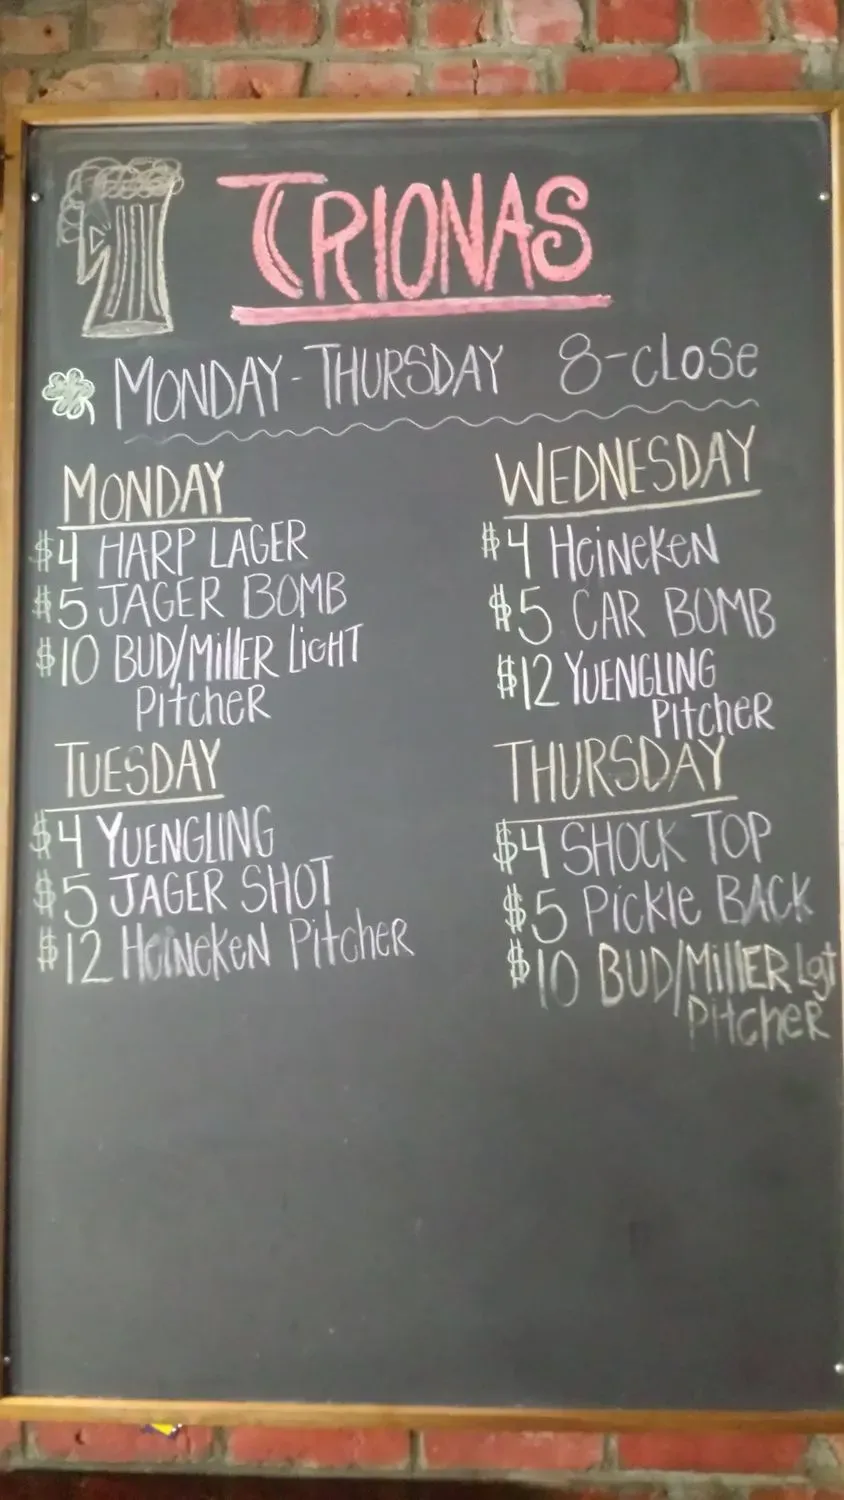 TRIONAS
MONDAY-THURSDAY 8-close
MONDAY
$4 HARP LAGER
$5 JAGER BOMB
$10 BUD/MillER LiGHT
PitcheR
TUESDAY
$4 YUENGLING
$5 JAGER SHOT
$12 HeiNeKeN PitcheR
WEDNESDAY
$4 HeiNeKeN
$5 CAR BOMB
$12 YUENGLING
PitcheR
THURSDAY
$4 SHOCK TOP
$5 PicKle BACK
$10 BUD/MillER Lgt
PitcheR